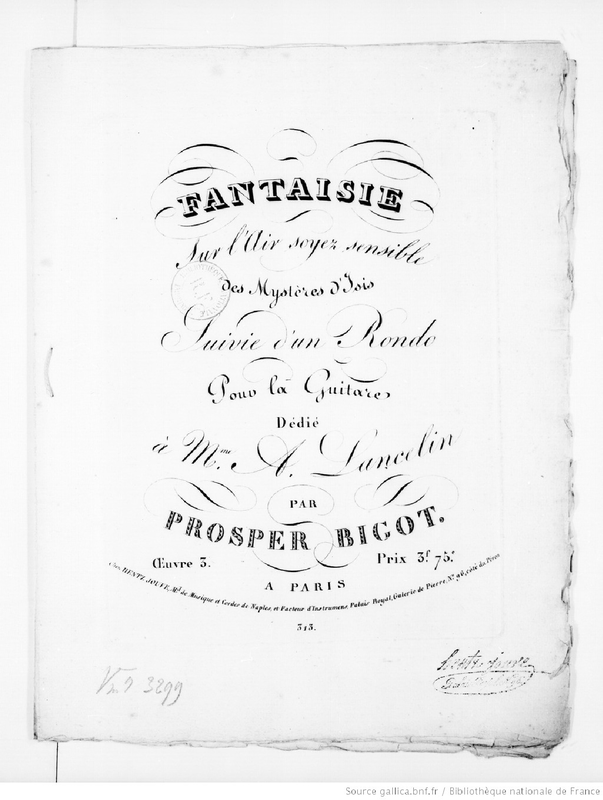 FANTAISIE
Sur l'Air soyez sensible
des Mystères d'Isis
Suivie d'un Rondo
Pour la Guitare
Dédié
à Mme. A. Lancelin
PAR
PROSPER BIGOT.
Œuvre 3. Prix 3f. 75c.
A PARIS
Chez HENTZ JOUVE, Md. de Musique et Cordes de Naples, et Facteur d'Instrumens, Palais Royal, Galerie de Pierre, No. 96, côté du Perron
313.
Hentz jouve
Vm9 3299
Source gallica.bnf.fr / Bibliothèque nationale de France